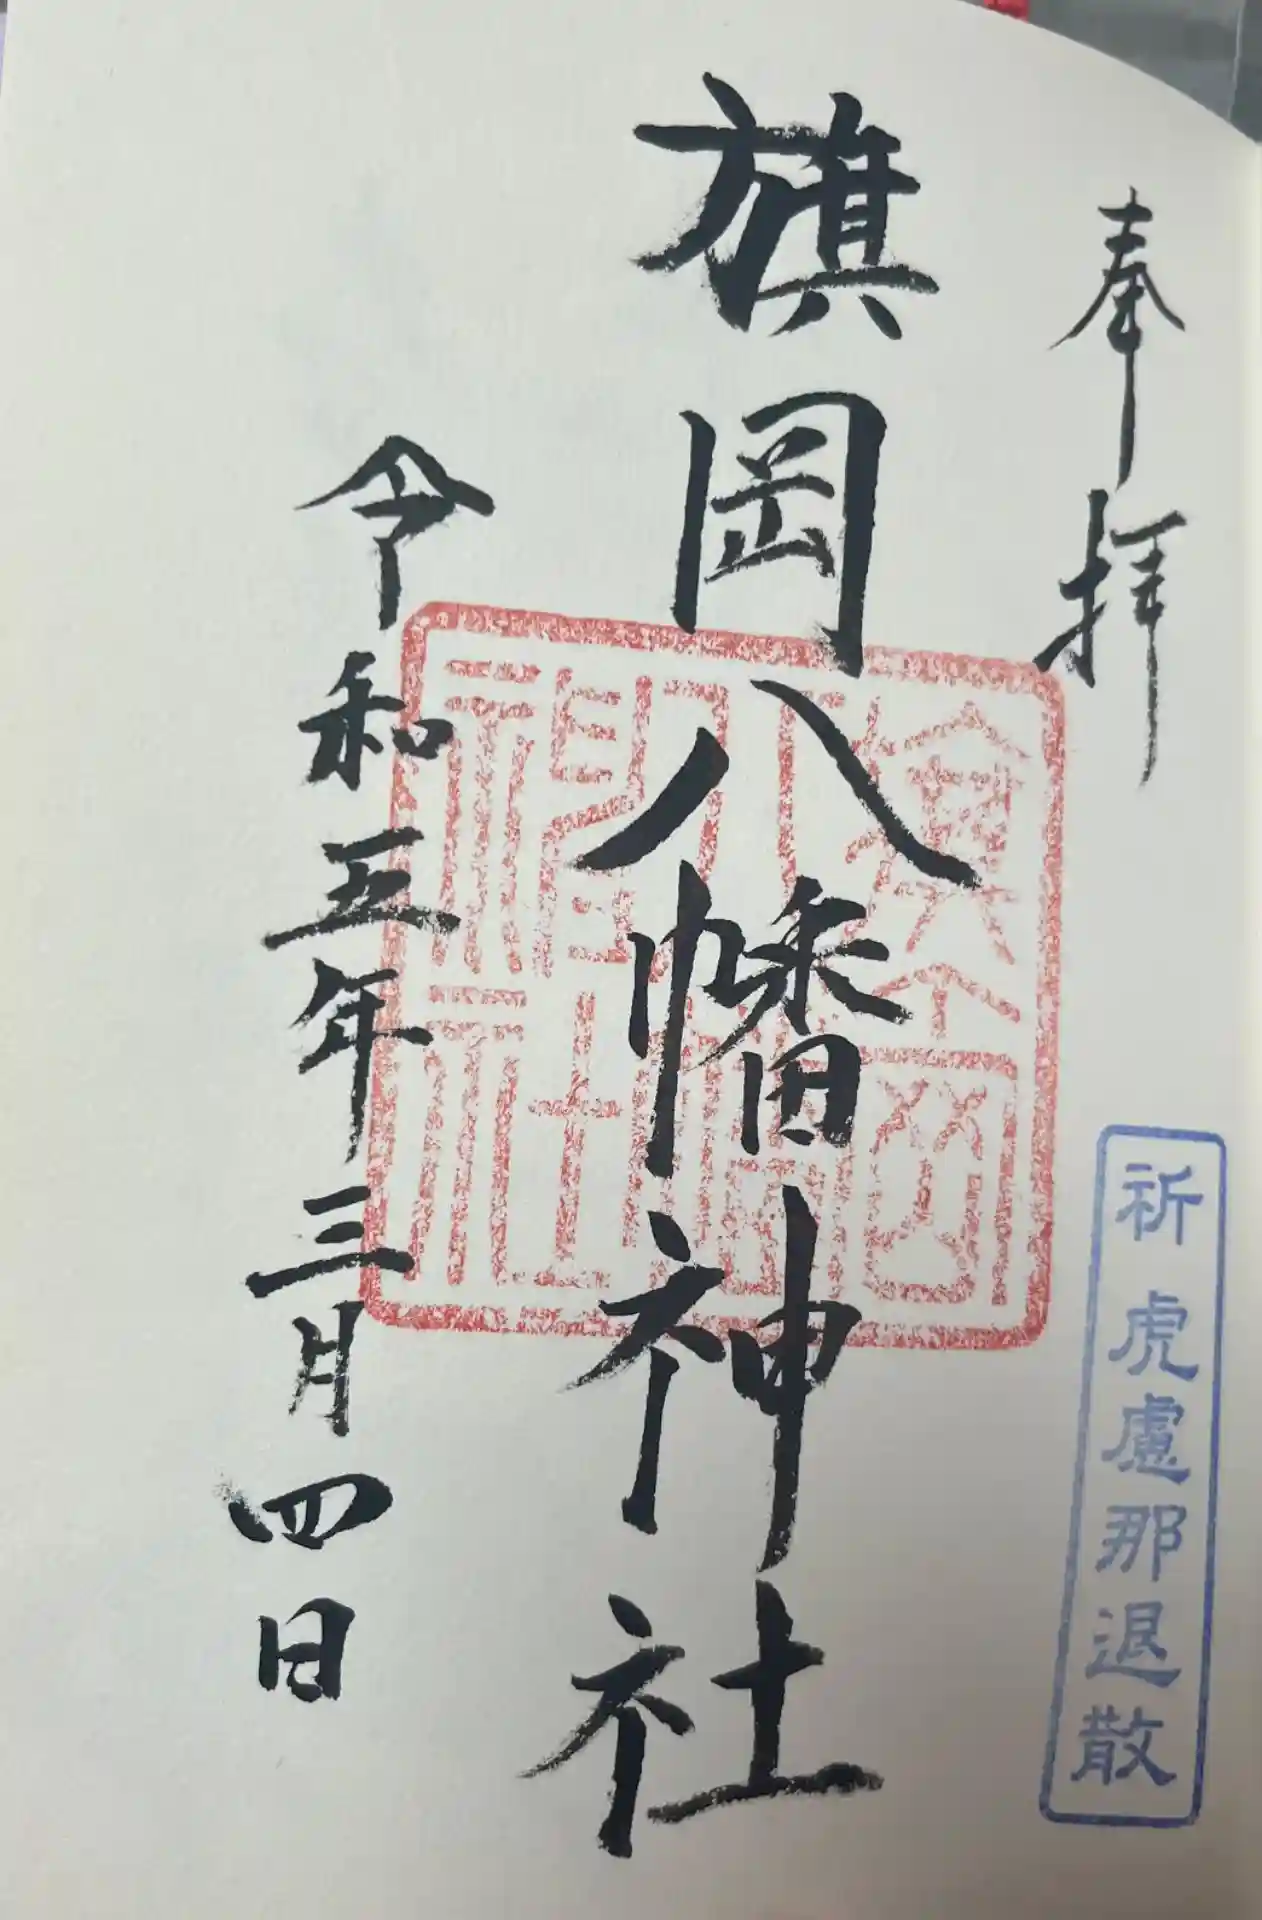 奉拝
祈 虎慮那退散
旗岡八幡神社
令和五年三月四日